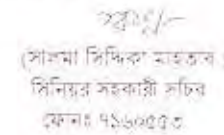 স্বাঃ/-
(সালমা সিদ্দিকা মাহতাব)
সিনিয়র সহকারী সচিব
ফোনঃ ৭১৬০৫৫৩